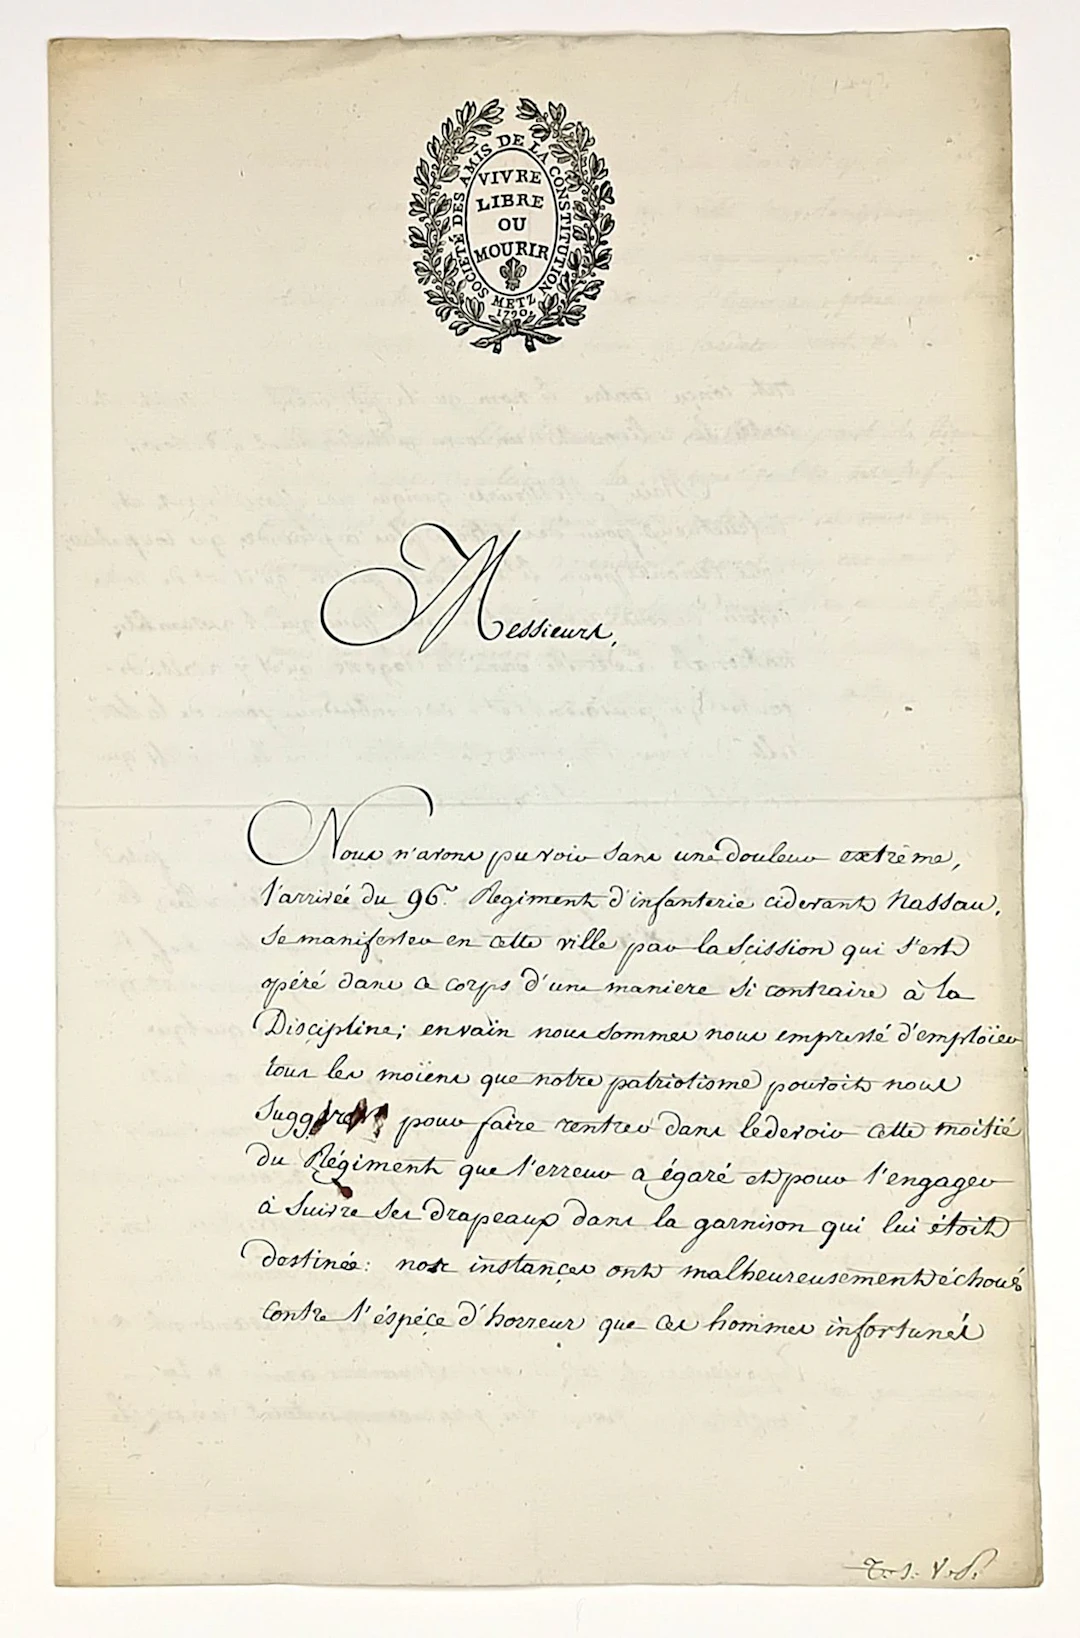 SOCIETÉ DES AMIS DE LA CONSTITUTION
VIVRE
LIBRE
OU
MOURIR
METZ
1790.
Messieurs,
Nous n'avons pu voir sans une douleur extrême,
l'arrivée du 96.e Régiment d'infanterie cidevant Nassau,
se manifester en cette ville par la scission qui s'est
opéré dans ce corps d'une maniere si contraire à la
Discipline; en vain nous sommes nous empressé d'emploïer
tous les moïens que notre patriotisme pouvoit nous
suggérer pour faire rentrer dans le devoir cette moitié
du Régiment que l'erreur a égaré et pour l'engager
à suivre ses drapeaux dans la garnison qui lui étoit
destinée: nos instances ont malheureusement échoués
contre l'espéce d'horreur que ces hommes infortunés
T. S. V. P.